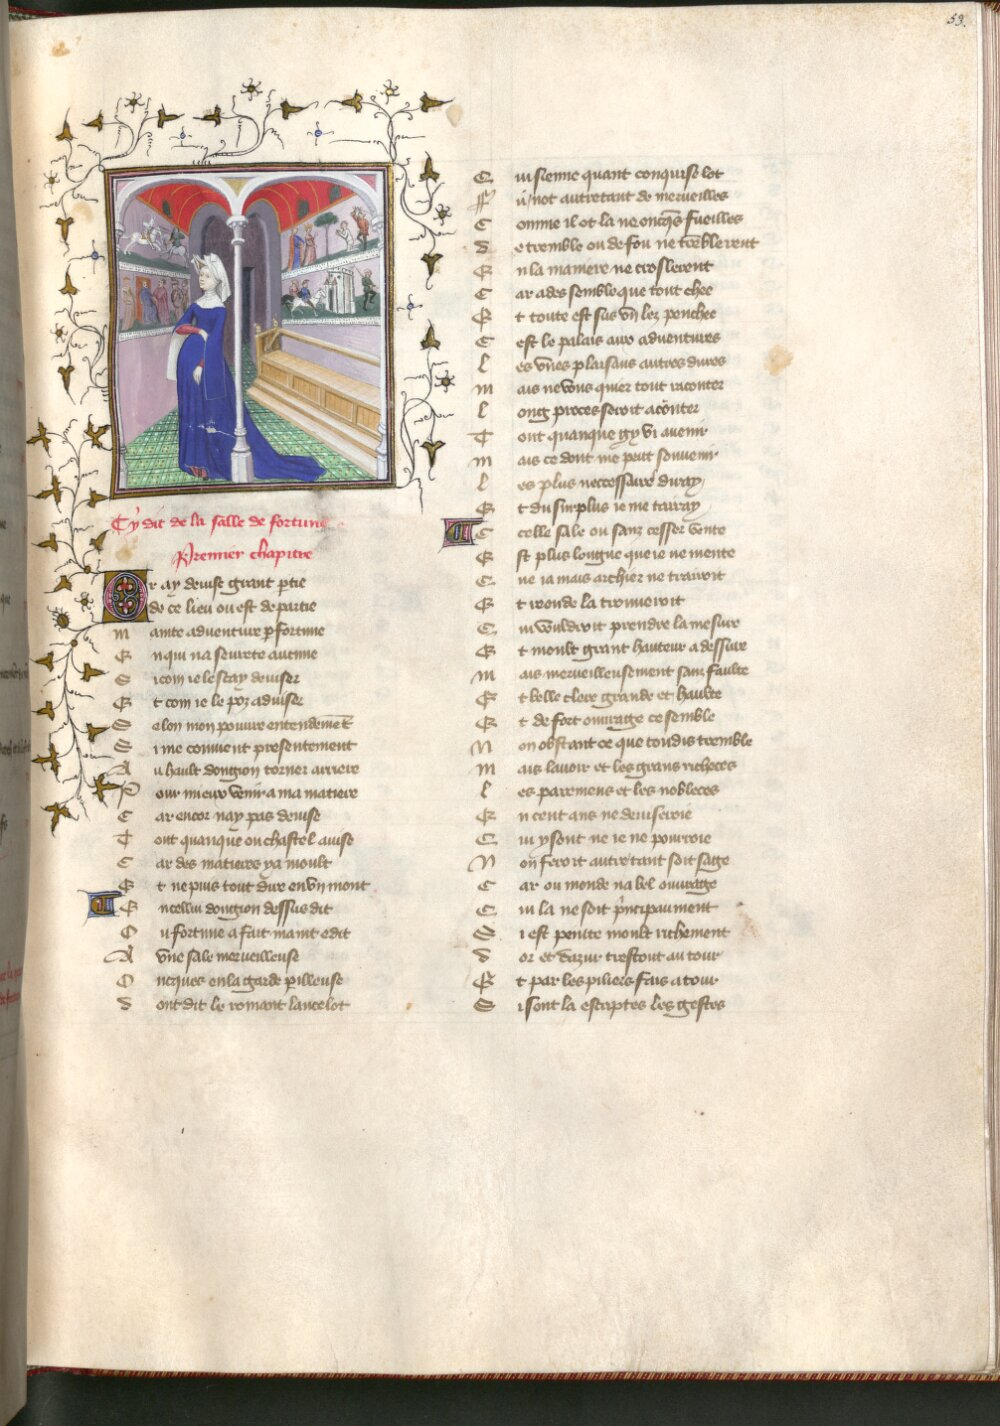 53.
Cy dit de la salle de fortune
Premier chapitre
Or ay devise grant ptie
de ce lieu ou est departie
Mainte adventure p fortune
En qui na seurete aucune
Si com ie le scay deviser
Et com ie le poz adviser
Selon mon povure entendemēt
Si me convient presentement
Au hault dongion torner arriere
Pour mieux venir a ma matiere
Car encor nay pas devise
Tout quanque ou chastel avise
Car des matieres ya moult
Et ne puis tout dire en vn mont
En cellui dongion dessus dit
Ou fortune a fait maint edit
A vne sale merveilleuse
Oncques en la garde pilleuse
Dont dit le romant lancelot
Cuisienne quant conquise lot
Ny not autretant de merveilles
Comme il ot la ne oncqs fueilles
De tremble ou de fou ne trēblerent
En la maniere ne croslerent
Car ades semble que tout chee
Et toute est sus vn lez penchee
Cest le palais aux adventures
Les vnes plaisans autres dures
Mais ne vous quier tout raconter
Long proces seroit a cōnter
Tout quanque gy vi avenir
Mais ce dont me peut souvenir
Les plus neccessaire diray
Et du surplus ie me tairay
Icelle sale ou sanz cesser vente
Est plus longue que ie ne mente
Cune ia mais archier ne trairoit
Et reonde la trouveroit
Cui vouldroit prendre la mesure
Et moult grant haulteur a dessure
Mais merveilleusement sanz faulte
Et belle clere grande et haulte
Et de fort ouvrage ce semble
Non obstant ce que toudis tremble
Mais lavoir et les grans richeces
Les paremens et les nobleces
En cent ans ne deviseroie
Cui y sont ne ie ne pourroie
Non feroit autre tant soit sage
Car ou monde na bel ouvrage
Cui la ne soit pncipaument
Si est peinte moult richement
Dor et dazur trestout au tour
Et par les piliers fais a tour
Si sont la escriptes les gestes